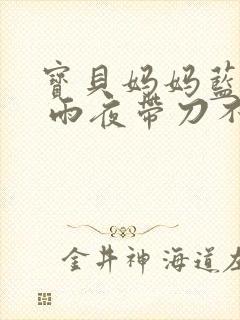 寶貝妈妈藍
雨夜帶刀不
金井神海道左